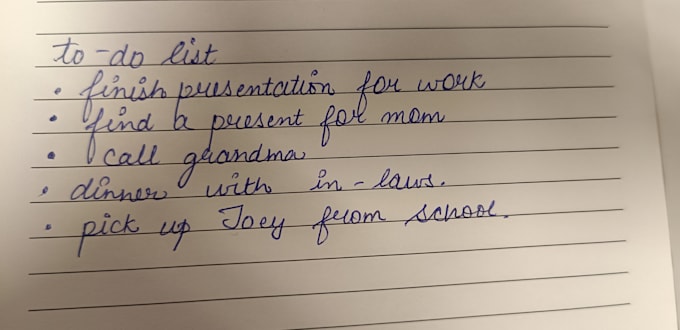 to-do list
• finish presentation for work
• find a present for mom
• call grandma
• dinner with in-laws.
• pick up Joey from school.